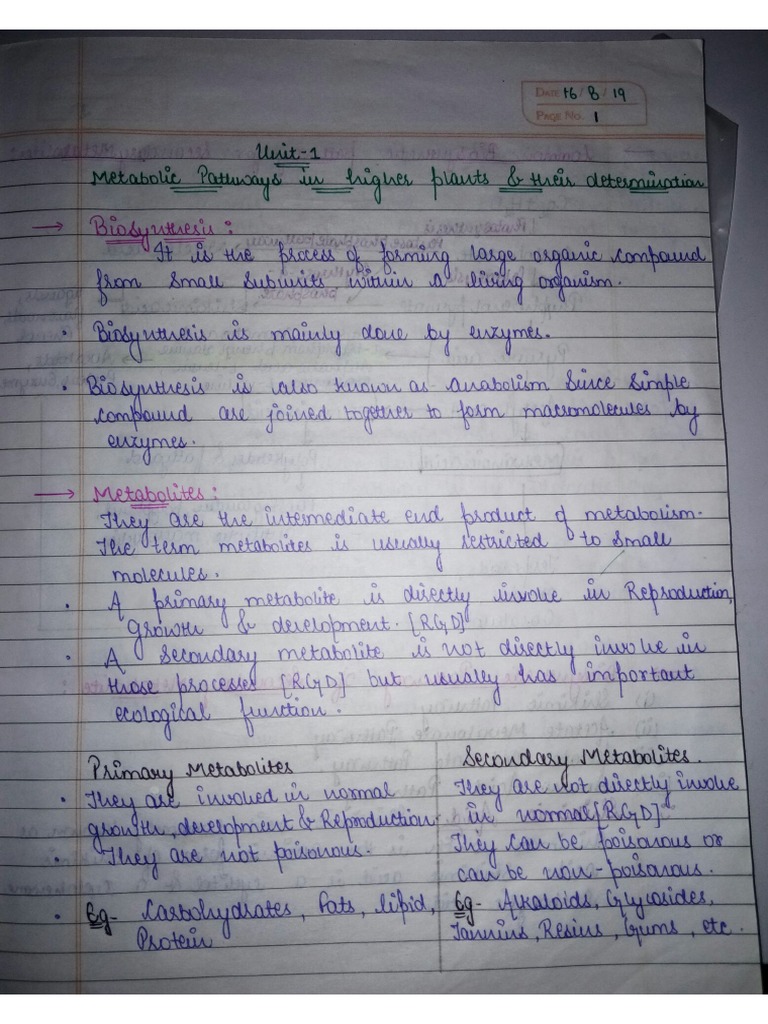 DATE 16/8/19
PAGE NO. 1
Unit-1
Metabolic Pathways in higher plants & their determination
→ Biosynthesis :
It is the process of forming large organic compound
from small subunits within a living organism.
• Biosynthesis is mainly done by enzymes.
• Biosynthesis is also known as Anabolism since simple
compound are joined together to form macromolecules by
enzymes.
→ Metabolites :
They are the intermediate end product of metabolism.
The term metabolites is usually restricted to small
molecules.
• A primary metabolite is directly involve in Reproduction,
growth & development. [RGD]
• A secondary metabolite is not directly involve in
those processes [RGD] but usually has important
ecological function.
Primary Metabolites
• They are involved in normal
growth, development & Reproduction.
• They are not poisonous.
• Eg- Carbohydrates, Fats, lipid,
Protein
Secondary Metabolites.
They are not directly involve
in normal [RGD]
They can be poisonous or
can be non-poisonous.
Eg- Alkaloids, Glycosides,
Tannins, Resins, Gums, etc.